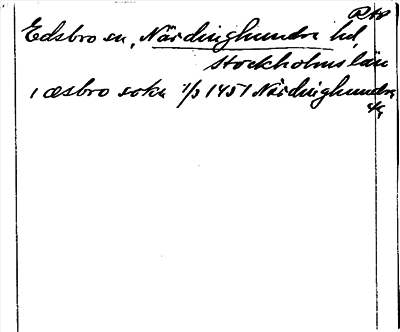 RAp
Edsbro sn, Närdinghundra hd,
Stockholms län
i æsbro sokn 1/3 1451 Närdinghundra